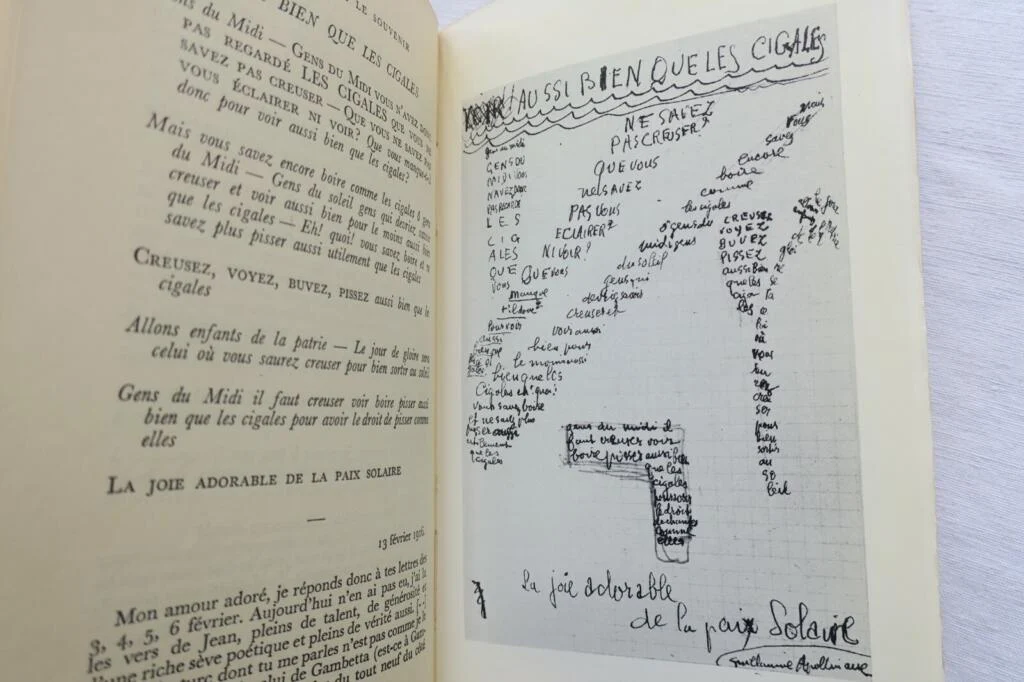 LE SOUVENIR
BIEN QUE LES CIGALES
Gens du Midi — Gens du Midi vous n'avez donc
pas regardé LES CIGALES que vous ne
savez pas creuser — Que vous ne savez pas
vous éclairer ni voir? Que vous manque-t-il
donc pour voir aussi bien que les cigales?
Mais vous savez encore boire comme les cigales ô gens
du Midi — Gens du soleil gens qui devriez savoir
creuser et voir aussi bien pour le moins aussi bien
que les cigales — Eh! quoi! vous savez boire et ne
savez plus pisser aussi utilement que les cigales
CREUSEZ, VOYEZ, BUVEZ, PISSEZ aussi bien que les
cigales
Allons enfants de la patrie — Le jour de gloire sera
celui où vous saurez creuser pour bien sortir au soleil
Gens du Midi il faut creuser voir boire pisser aussi
bien que les cigales pour avoir le droit de pisser comme
elles
LA JOIE ADORABLE DE LA PAIX SOLAIRE
13 février 1916.
Mon amour adoré, je réponds donc à tes lettres des
3, 4, 5, 6 février. Aujourd'hui n'en ai pas eu, j'ai lu
les vers de Jean, pleins de talent, de générosité et
d'une riche sève poétique et pleins de vérité aussi. [...]
dont tu me parles n'est pas comme je le
celui de Gambetta (est-ce à Gam-
du tout neuf du côté
AUSSI BIEN QUE LES CIGALES
gens du midi
GENS DU
MIDI VOUS
N'AVEZ DONC
PAS REGARDÉ
LES
CIG
ALES
QUE
VOUS
NE SAVEZ
PAS CREUSER?
QUE VOUS
NE SAVEZ
PAS VOUS
ECLAIRER?
NI VOIR?
QUE VOUS
manque
t-il donc
pour voir
aussi
cigales
Mais
vous
savez
encore
boire
comme
les cigales
ô gens du
midi gens
du soleil
gens qui
devriez savoir
creuser et
voir aussi
bien pour
le moins aussi
bien que les
Cigales eh! quoi!
vous savez boire
et ne savez plus
pisser aussi
utilement
que les
cigales
CREUSEZ
VOYEZ
BUVEZ
PISSEZ
aussi bien
que les
ciga
les
où
vous
sau
rez
creu
ser
pour
bien
sortir
au
so
leil
gens du midi il
faut creuser voir
boire pisser aussi bien
que les
cigales
pour avoir
le droit
de chanter
comme
elles
La joie adorable
de la paix Solaire
Guillaume Apollinaire